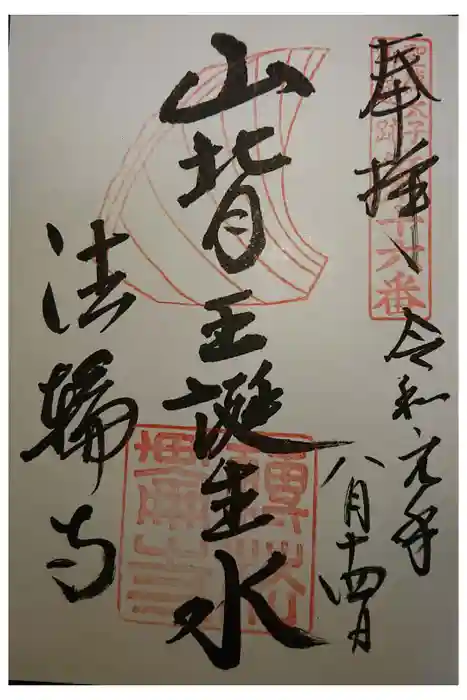 奉拝
令和元年
八月十四日
山背王誕生水
法輪寺